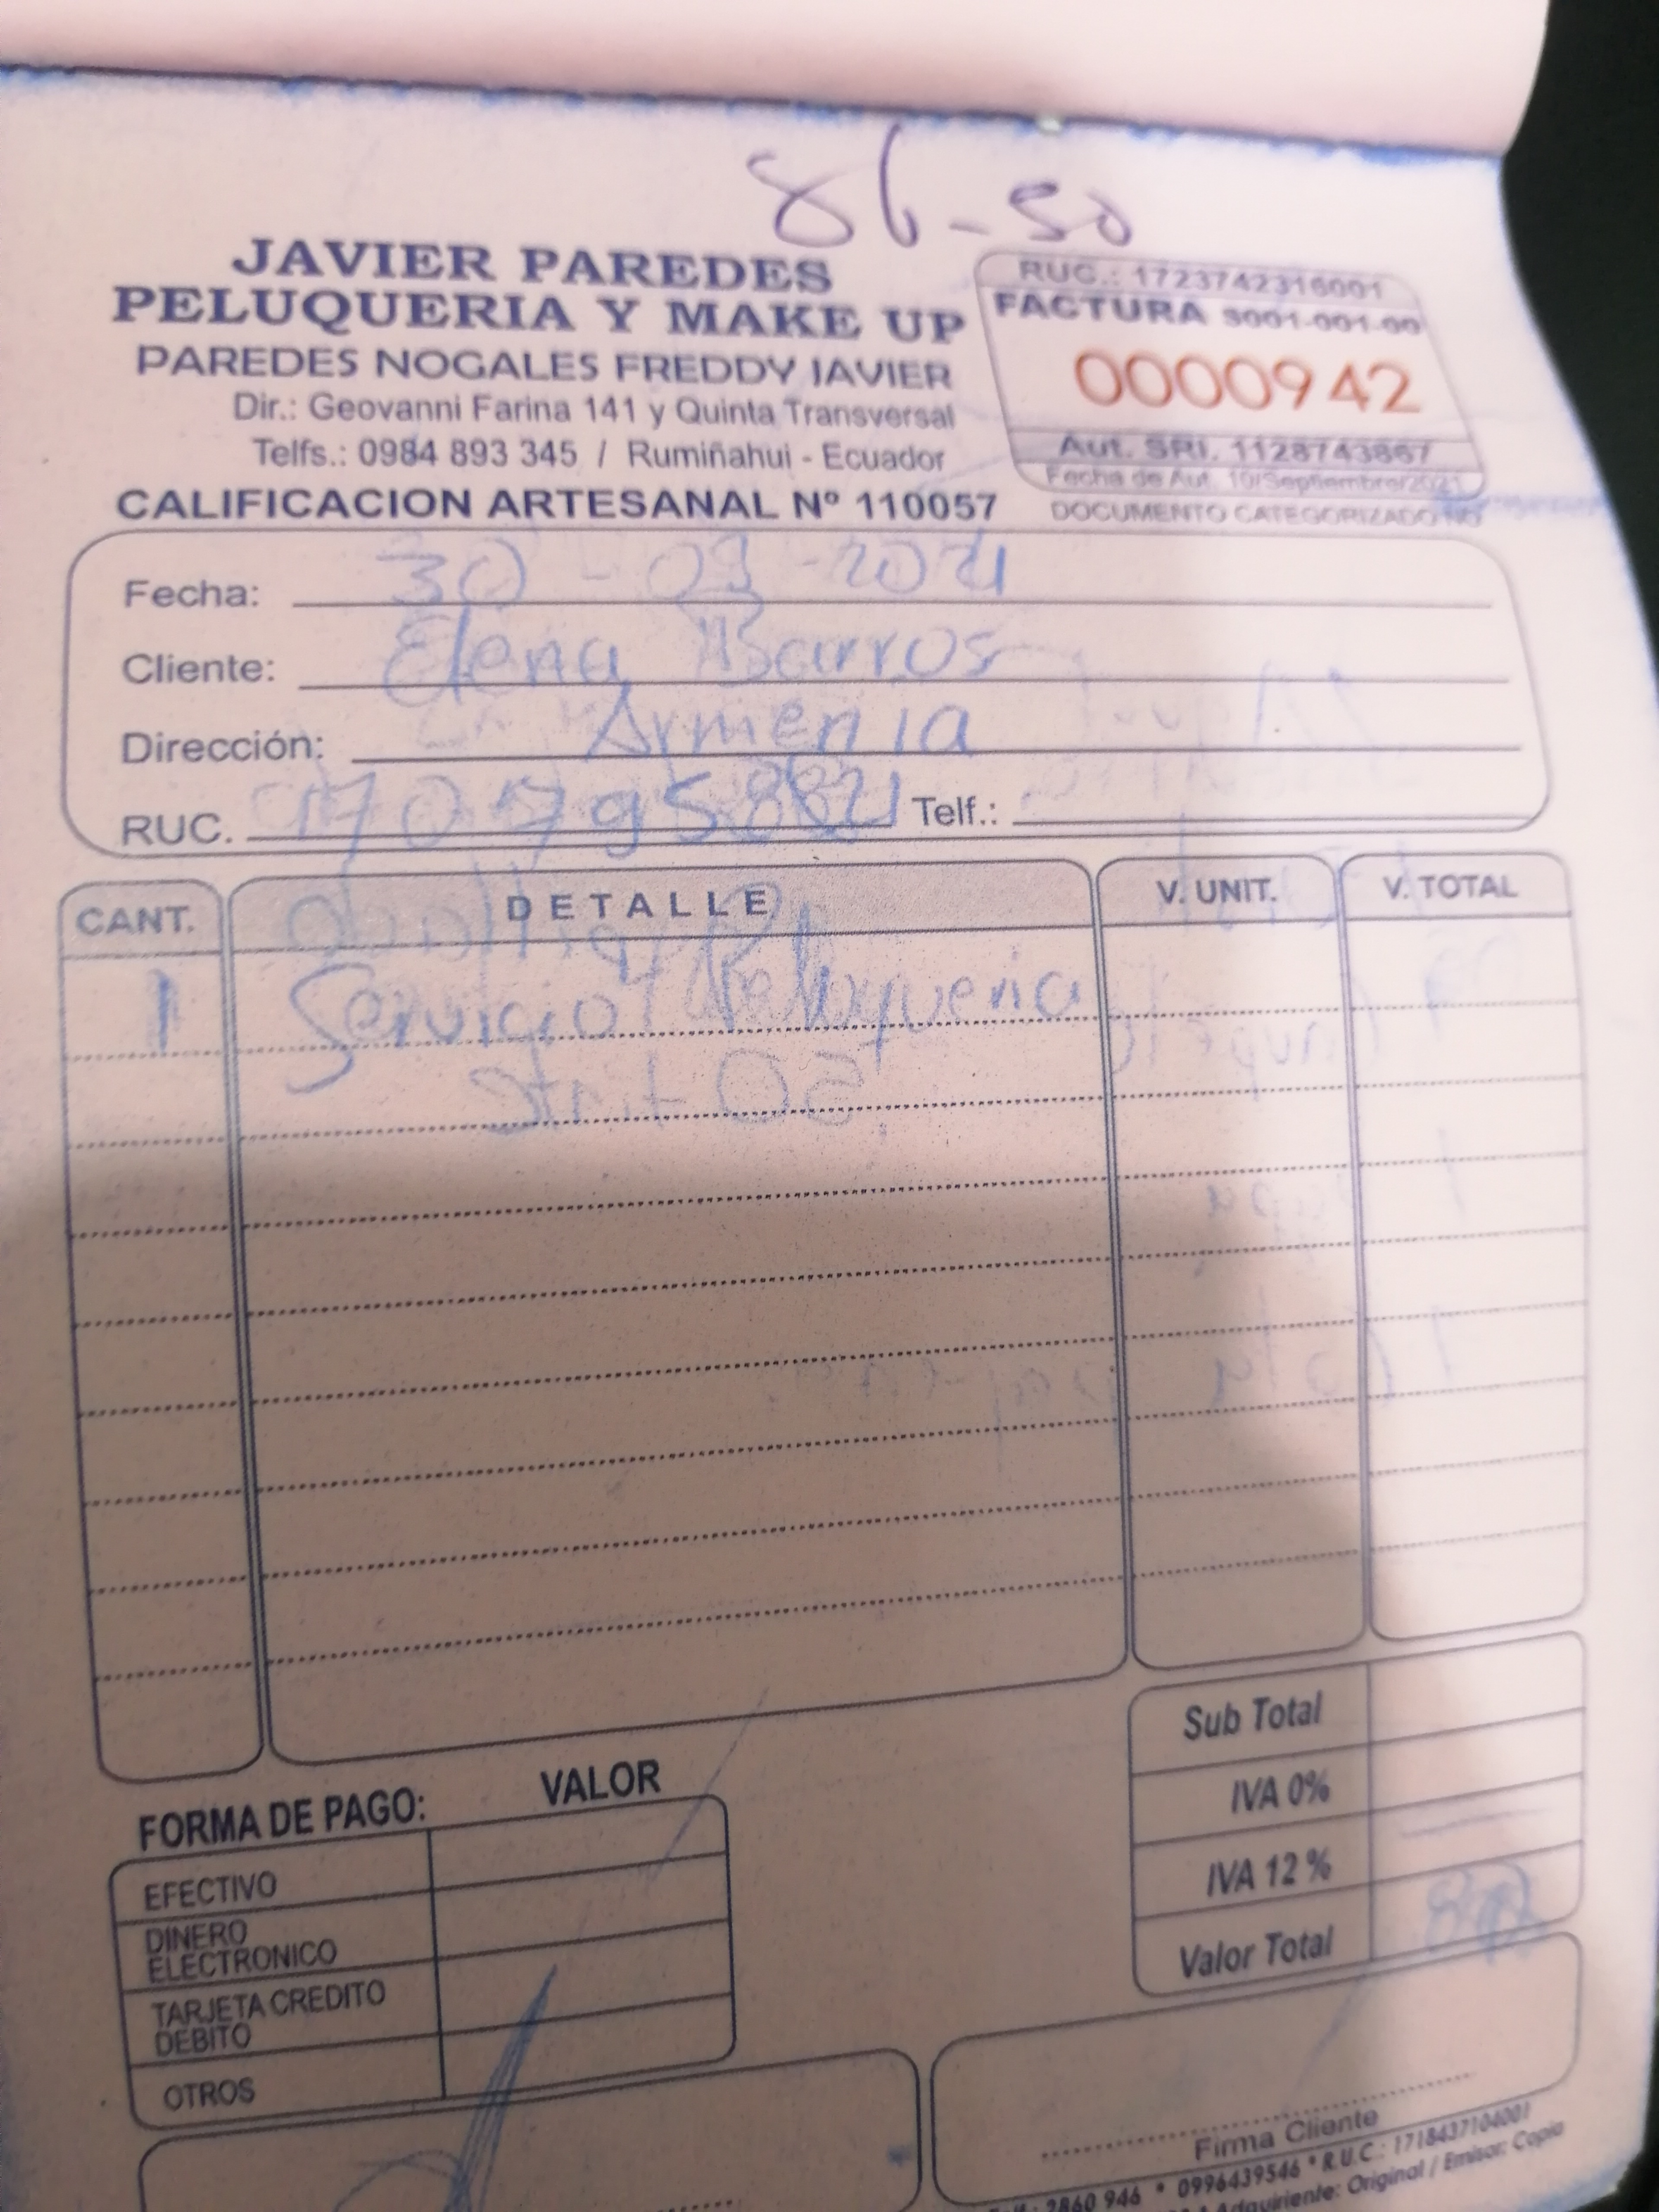 86-50
JAVIER PAREDES
PELUQUERIA Y MAKE UP
PAREDES NOGALES FREDDY JAVIER
Dir.: Geovanni Farina 141 y Quinta Transversal
Telfs.: 0984 893 345 / Rumiñahui - Ecuador
CALIFICACION ARTESANAL Nº 110057
RUC.: 1723742316001
FACTURA S001-001-00
0000942
Aut. SRI. 1128743867
Fecha de Aut. 10/Septiembre/2021
DOCUMENTO CATEGORIZADO NO
Fecha: 30-09-2021
Cliente: Elena Barros
Dirección: Armenia
RUC. Telf.:
CANT. DETALLE V. UNIT. V. TOTAL
1 Servicio Peluqueria
Sub Total
IVA 0%
IVA 12%
Valor Total
FORMA DE PAGO: VALOR
EFECTIVO
DINERO ELECTRONICO
TARJETA CREDITO DEBITO
OTROS
Firma Cliente
2860 946 * 0996439546 * R.U.C.: 1718437104001
Adquiriente: Original / Emisor: Copia